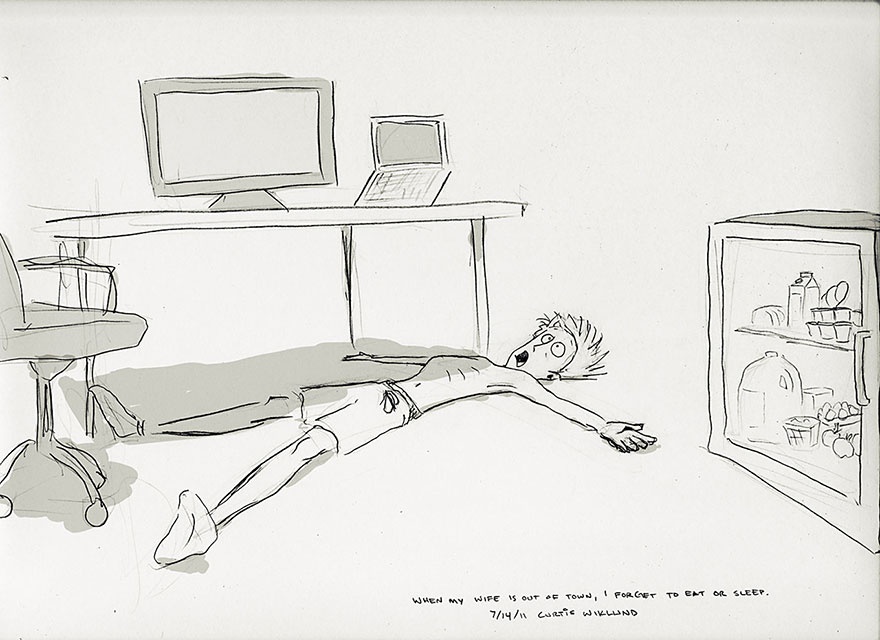 WHEN MY WIFE IS OUT OF TOWN, I FORGET TO EAT OR SLEEP.
7/14/11 CURTIS WIKLUND